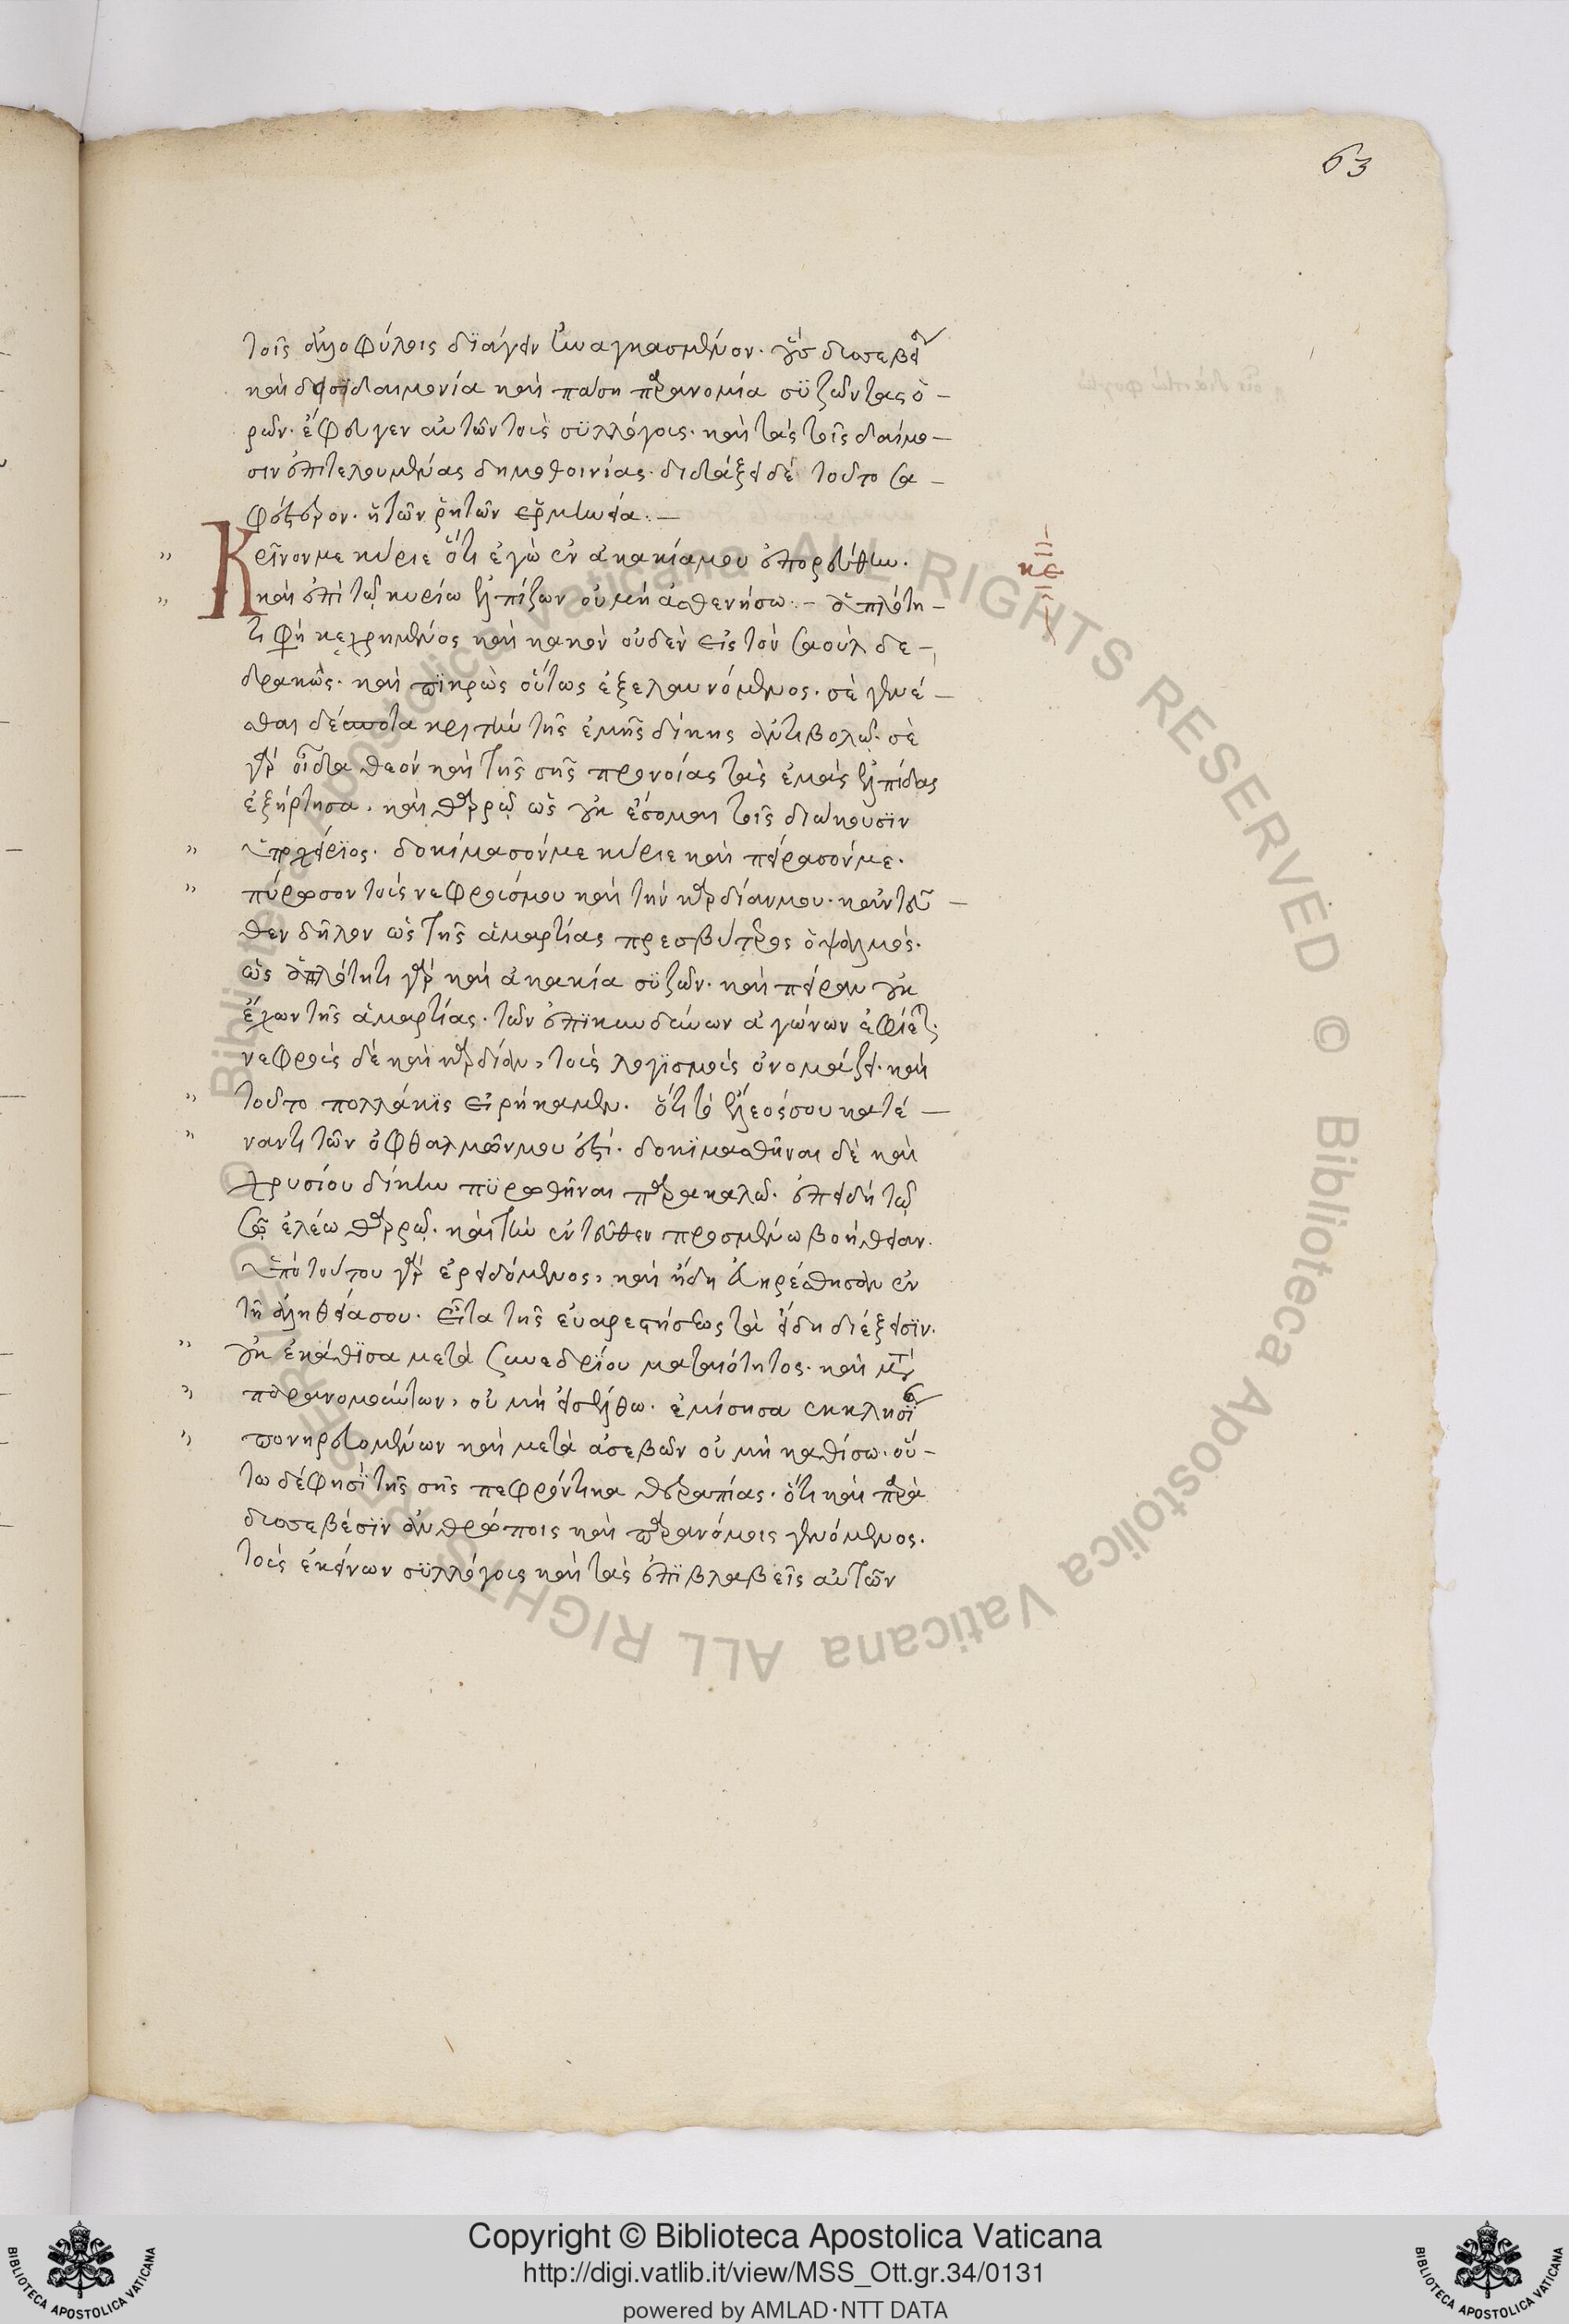 63
τοῖς ἀλλοφύλοις διάγειν ἠναγκασμένον. οὓς δυσσεβεία
καὶ δεισιδαιμονία καὶ πάση παρανομία συζῶντας ὁ-
ρῶν. ἔφευγεν αὐτῶν τοὺς συλλόγους. καὶ τὰς τοῖς δαίμο-
σιν ἐπιτελουμένας δημοθοινίας. διδάξει δὲ τοῦτο σα-
φέστερον. ἡ τῶν ῥητῶν ἑρμηνεία:-
" Κρῖνον με κύριε ὅτι ἐγὼ ἐν ἀκακία μου ἐπορεύθην.
κε
" καὶ ἐπὶ τῶ κυρίω ἐλπίζων οὐ μὴ ἀσθενήσω:- ἁπλότη-
τι φὴ κεχρημένος καὶ κακὸν οὐδὲν εἰς τὸν σαοὺλ δε-
δρακὼς. καὶ πικρῶς οὕτως ἐξελαυνόμενος. σὲ γενέ-
σθαι δέσποτα κριτὴν τῆς ἐμῆς δίκης ἀντιβολῶ. σὲ
γὰρ οἶδα θεὸν καὶ τῆς σῆς προνοίας τὰς ἐμὰς ἐλπίδας
ἐξήρτησα. καὶ θαρρῶ ὡς οὐκ ἔσομαι τοῖς διώκουσιν
" ὑποχείριος. δοκίμασόν με κύριε καὶ πείρασόν με.
" πύρωσον τοὺς νεφρούς μου καὶ τὴν καρδίαν μου. κἀντεῦ-
θεν δῆλον ὡς τῆς ἁμαρτίας πρεσβύτερος ὁ ψαλμός.
ὡς ἁπλότητι γὰρ καὶ ἀκακία συζῶν. καὶ πεῖραν οὐκ
ἔχων τῆς ἁμαρτίας. τῶν ἐπικινδύνων ἀγώνων ἐφίεται.
νεφροὺς δὲ καὶ καρδίαν, τοὺς λογισμοὺς ὀνομάζει. καὶ
" τοῦτο πολλάκις εἰρήκαμεν. ὅτι τὸ ἔλεός σου κατέ-
" ναντι τῶν ὀφθαλμῶν μου ἐστί. δοκιμασθῆναι δὲ καὶ
χρυσίου δίκην πυρωθῆναι παρακαλῶ. ἐπειδὴ τῶ
σῶ ἐλέω θαρρῶ. καὶ τὴν ἐντεῦθεν προσμένω βοήθειαν.
ὑπὸ τούτου γὰρ ἐρειδόμενος, καὶ ἤδη εὐηρέστησαν ἐν
τῆ ἀληθεία σου. εἶτα τῆς εὐαρεστήσεως τὰ εἴδη διέξεισιν.
" οὐκ ἐκάθισα μετὰ συνεδρίου ματαιότητος. καὶ μετὰ
" παρανομούντων, οὐ μὴ εἰσέλθω. ἐμίσησα ἐκκλησίαν
" πονηρευομένων καὶ μετὰ ἀσεβῶν οὐ μὴ καθίσω. οὕ-
τω δέ φησι τῆς σῆς πεφρόντικα θεραπείας. ὅτι καὶ παρὰ
δυσσεβέσιν ἀνθρώποις καὶ παρανόμοις γενόμενος.
τοὺς ἐκείνων συλλόγους καὶ τὰς ἐπιβλαβεῖς αὐτῶν
Copyright © Biblioteca Apostolica Vaticana
http://digi.vatlib.it/view/MSS_Ott.gr.34/0131
powered by AMLAD·NTT DATA
BIBLIOTECA APOSTOLICA VATICANA
BIBLIOTECA APOSTOLICA VATICANA
© Biblioteca Apostolica Vaticana ALL RIGHTS RESERVED © Biblioteca Apostolica Vaticana ALL RIGHTS RESERVED